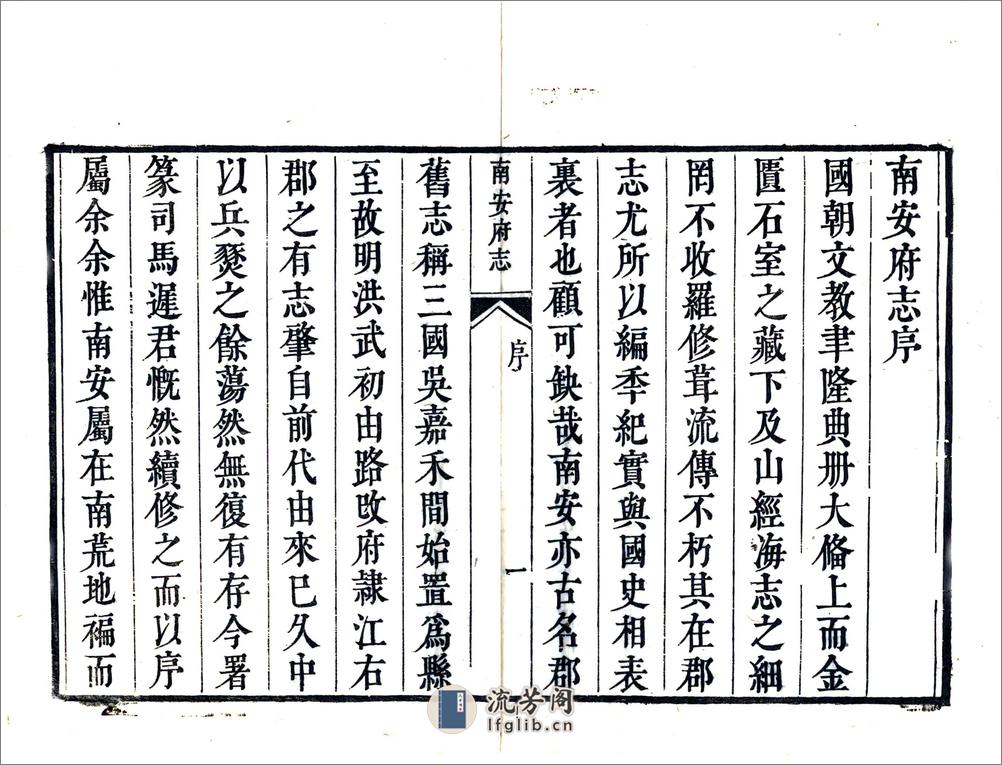 南安府志序
國朝文教聿隆典册大俻上而金
匱石室之藏下及山經海志之細
罔不收羅修葺流傳不朽其在郡
志尤所以編秊紀實與國史相表
裏者也顧可缺哉南安亦古名郡
南安府志
序
一
舊志稱三國吳嘉禾間始置爲縣
至故明洪武初由路改府隸江右
郡之有志肇自前代由來已久中
以兵燹之餘蕩然無復有存今署
篆司馬遲君慨然續修之而以序
屬余余惟南安屬在南荒地褊而
流芳阁
lfglib.cn